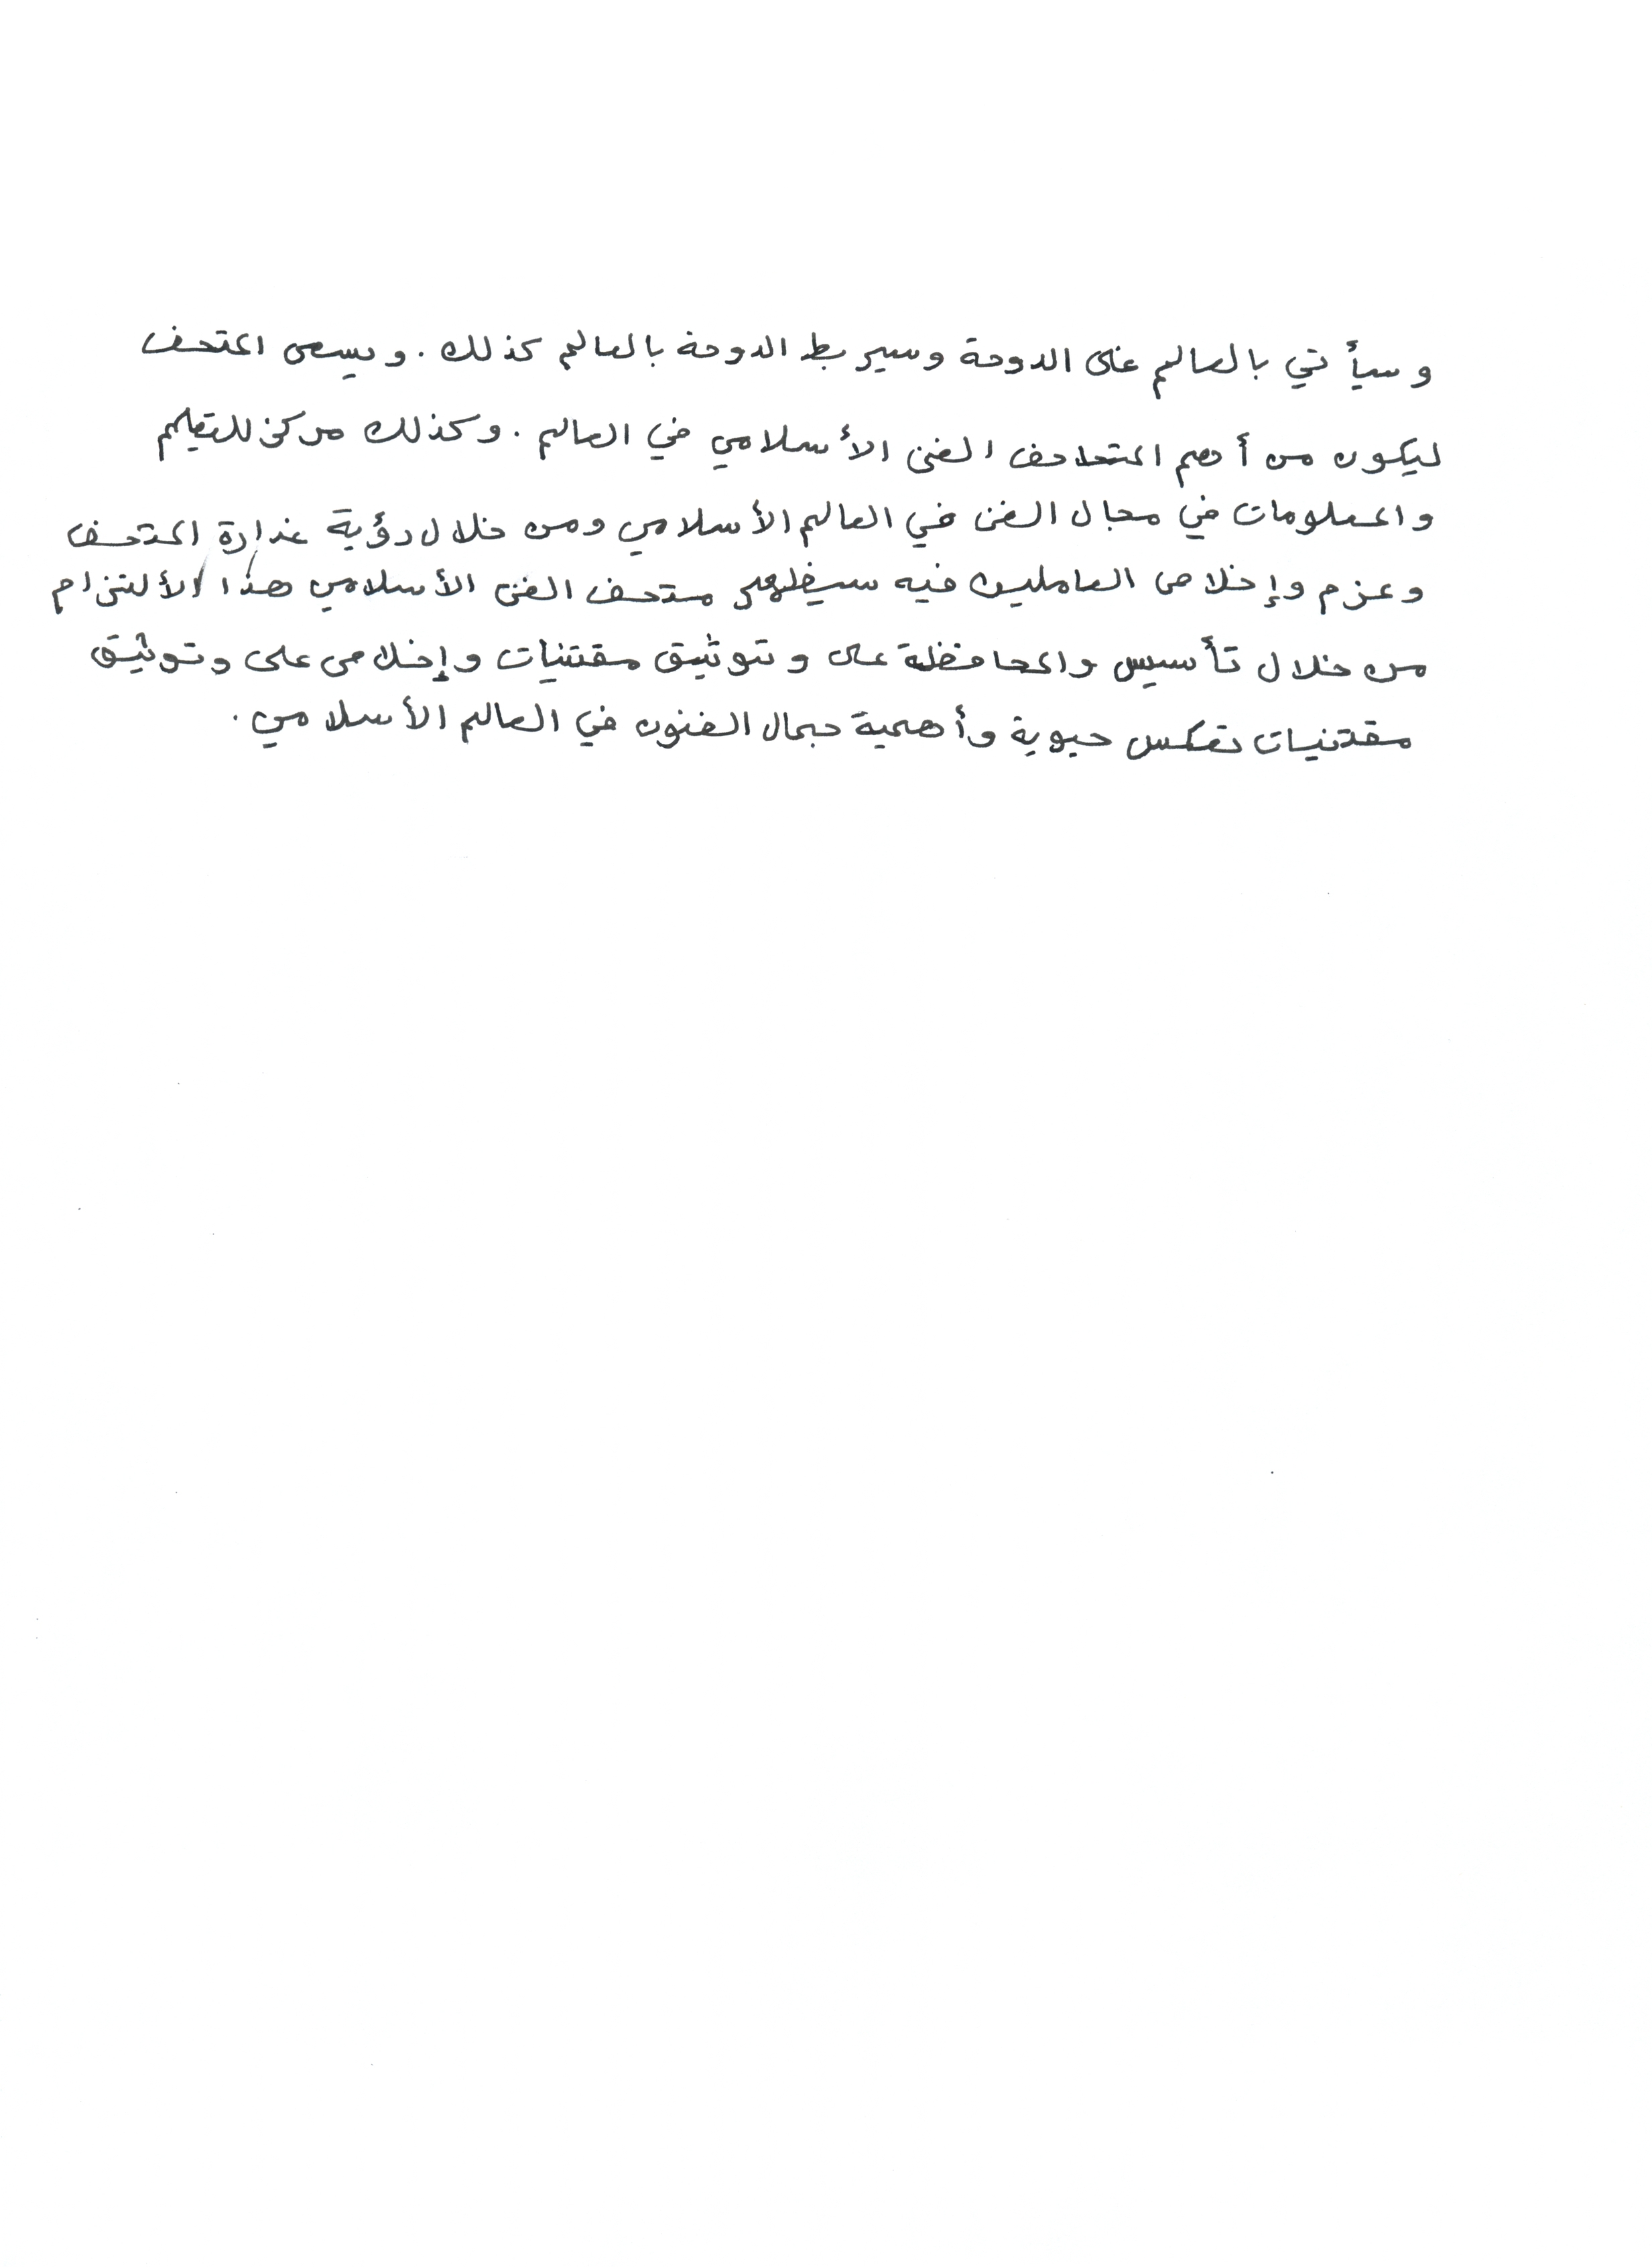 وسيأتي بالعالم غلى الدوحة وسيربط الدوحة بالعالم كذلك . ويسعى المتحف
ليكون من أهم المتحاحف الفن الأسلامي في العالم . وكذلك مركز للتعليم
والمعلومات في مجال الفن في العالم الأسلامي ومن خلال رؤية غدارة المتحف
وعزم وإخلاص العاملين فيه سيظهر متحف الفن الأسلامي هذا الألتزام
من خلال تأسيس والمحافظة على وتوثيق مقتنيات وإخلاص على وتوثيق
مقتنيات تعكس حيوية وأهمية جمال الفنون في العالم الأسلامي .